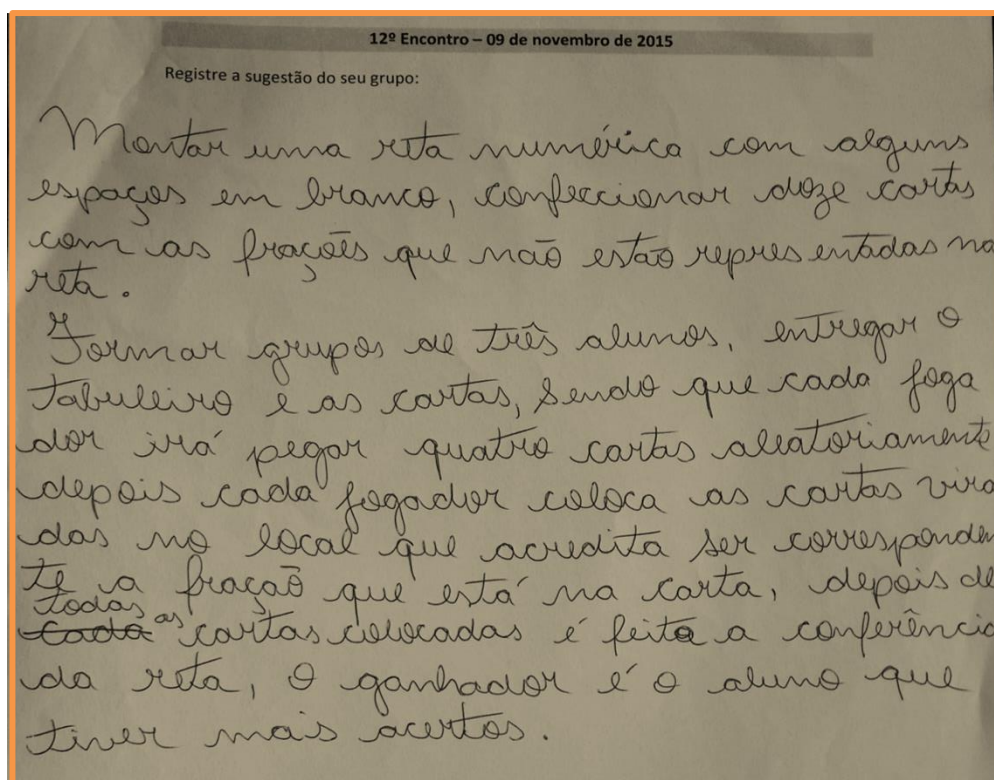 12º Encontro – 09 de novembro de 2015
Registre a sugestão do seu grupo:
Montar uma reta numérica com alguns
espaços em branco, confeccionar doze cartas
com as frações que não estão representadas na
reta.
Formar grupos de três alunos, entregar o
tabuleiro e as cartas, sendo que cada joga
dor irá pegar quatro cartas aleatoriamente
depois cada jogador coloca as cartas vira
das no local que acredita ser corresponden
te a fração que está na carta, depois de
todas as cartas colocadas é feita a conferência
da reta, o ganhador é o aluno que
tiver mais acertos.